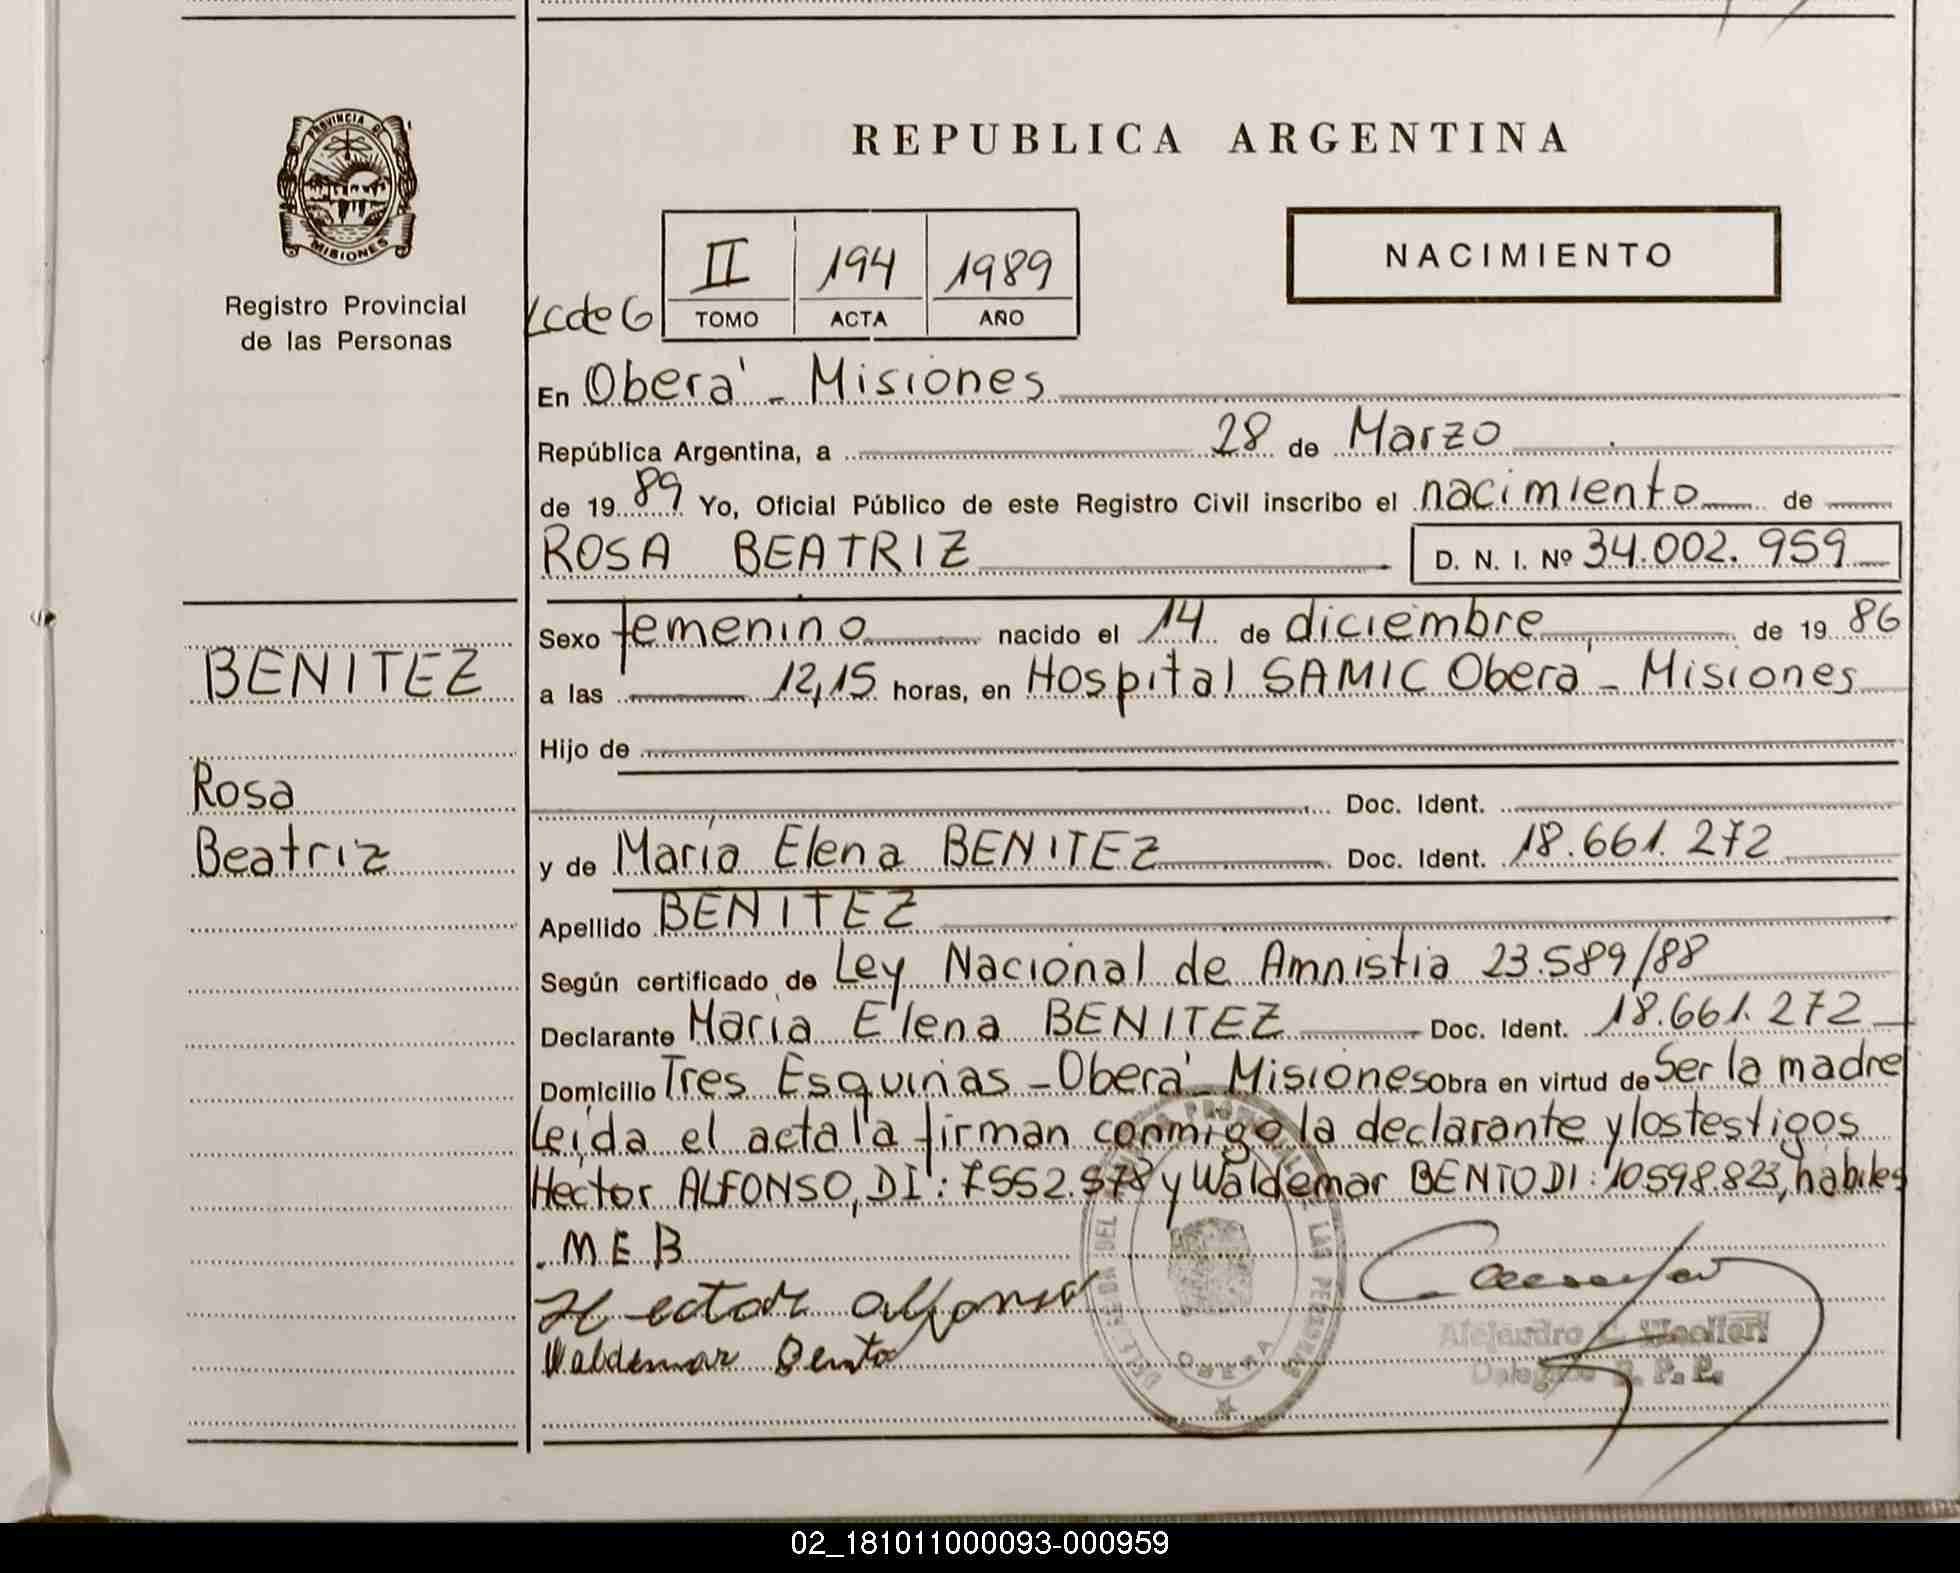 PROVINCIA DE
MISIONES
Registro Provincial
de las Personas
BENITEZ
Rosa
Beatriz
REPUBLICA ARGENTINA
II 194 1989
TOMO ACTA AÑO
NACIMIENTO
En Oberá - Misiones
República Argentina, a 28 de Marzo
de 19 89 Yo, Oficial Público de este Registro Civil inscribo el nacimiento de
ROSA BEATRIZ D. N. I. Nº 34.002.959
Sexo femenino nacido el 14 de diciembre de 19 86
a las 12,15 horas, en Hospital SAMIC Oberá - Misiones
Hijo de
Doc. Ident.
y de María Elena BENITEZ Doc. Ident. 18.661.272
Apellido BENITEZ
Según certificado de Ley Nacional de Amnistia 23.589/88
Declarante María Elena BENITEZ Doc. Ident. 18.661.272
Domicilio Tres Esquinas - Oberá Misiones Obra en virtud de Ser la madre
Leída el acta la firman conmigo la declarante y los testigos
Hector ALFONSO, DI: 7.552.578 y Waldemar BENTO DI: 10.598.823, hábiles
M E B
Hector Alfonso
Waldemar Bento
OBERA
Alejandro
Delegado R. P. P.
02_181011000093-000959